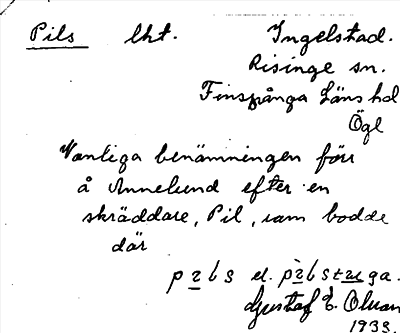 Pils lht. Ingelstad.
Risinge sn.
Finspånga Läns hd
Ögl
Vanliga benämningen förr
å Annelund efter en
skräddare, Pil, som bodde
där
el.
Gustaf E. Olsson
1933.